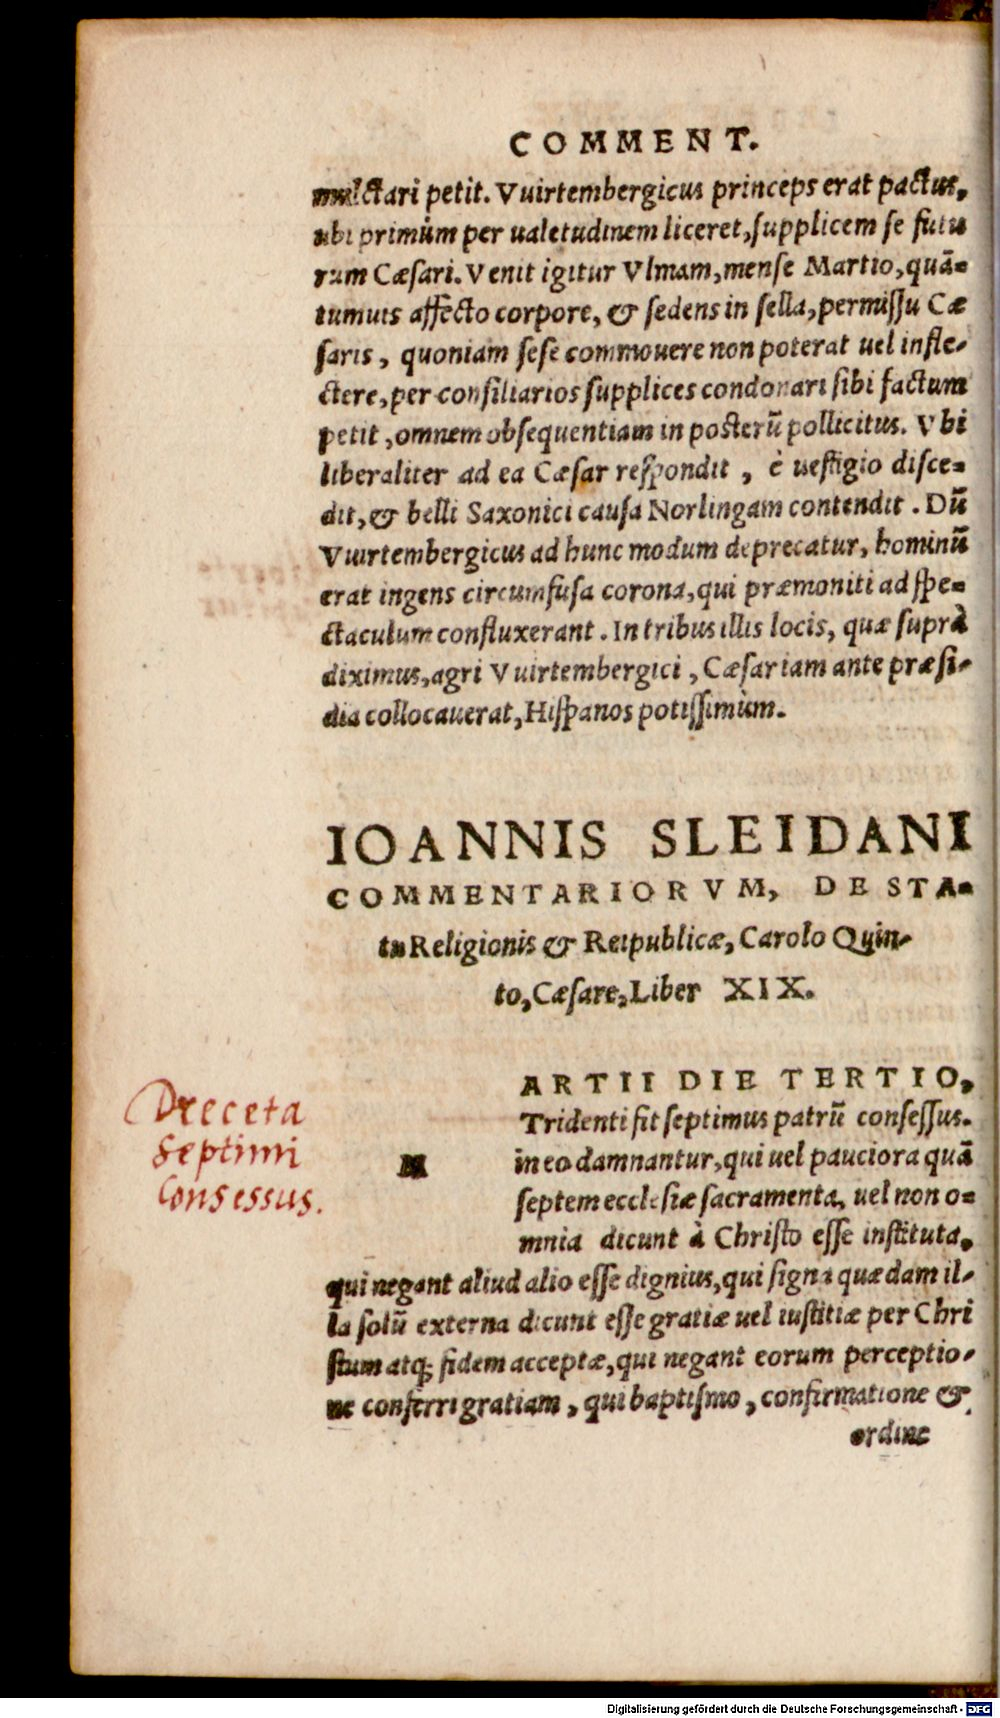 COMMENT.
mulctari petit. Vuirtembergicus princeps erat pactus,
ubi primùm per ualetudinem liceret, supplicem se futu
rum Cæsari. Venit igitur Vlmam, mense Martio, quã-
tumuis affecto corpore, & sedens in sella, permissu Cæ
saris, quoniam sese commouere non poterat uel infle-
ctere, per consiliarios supplices condonari sibi factum
petit, omnem obsequentiam in posterũ pollicitus. Vbi
liberaliter ad ea Cæsar respondit, è uestigio disce-
dit, & belli Saxonici causa Norlingam contendit. Dũ
Vuirtembergicus ad hunc modum deprecatur, hominũ
erat ingens circumfusa corona, qui præmoniti ad spe-
ctaculum confluxerant. In tribus illis locis, quæ suprà
diximus, agri Vuirtembergici, Cæsar iam ante præsi-
dia collocauerat, Hispanos potissimùm.
IOANNIS SLEIDANI
COMMENTARIORVM, DE STA-
tu Religionis & Reipublicæ, Carolo Quin-
to, Cæsare, Liber XIX.
M
ARTII DIE TERTIO,
Tridenti fit septimus patrũ consessus.
in eo damnantur, qui uel pauciora quã
septem ecclesiæ sacramenta, uel non o-
mnia dicunt à Christo esse instituta,
qui negant aliud alio esse dignius, qui signa quædam il-
la solũ externa dicunt esse gratiæ uel iustitiæ per Chri
stum atq; fidem acceptæ, qui negant eorum perceptio-
ne conferri gratiam, qui baptismo, confirmatione &
ordine
Dreceta
septimi
Consessus.
Digitalisierung gefördert durch die Deutsche Forschungsgemeinschaft - DFG